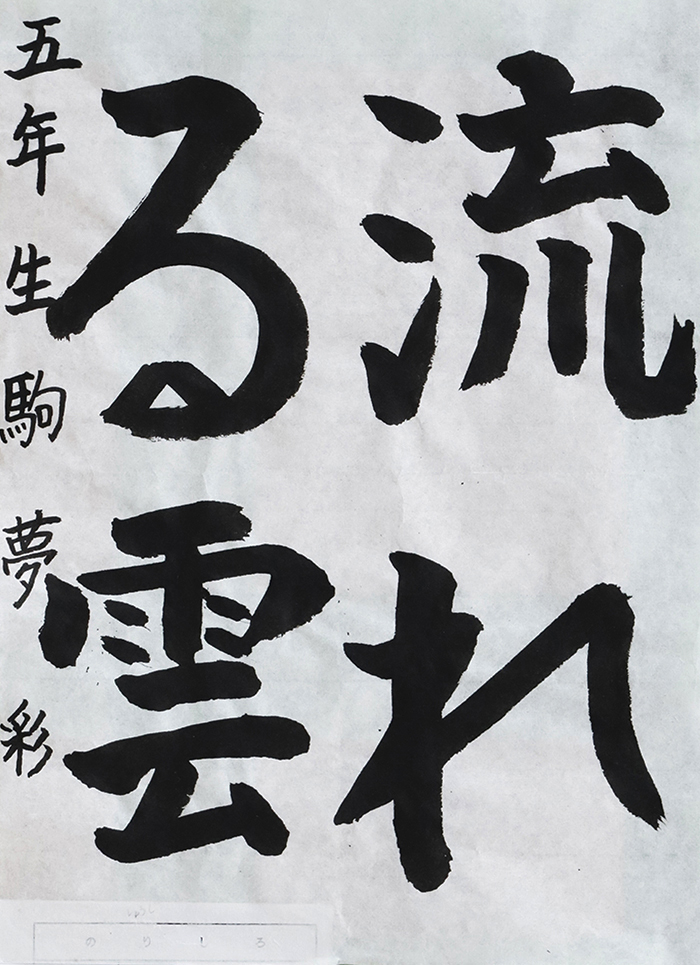 流れ
る雲
五年 生駒夢彩
のりしろ